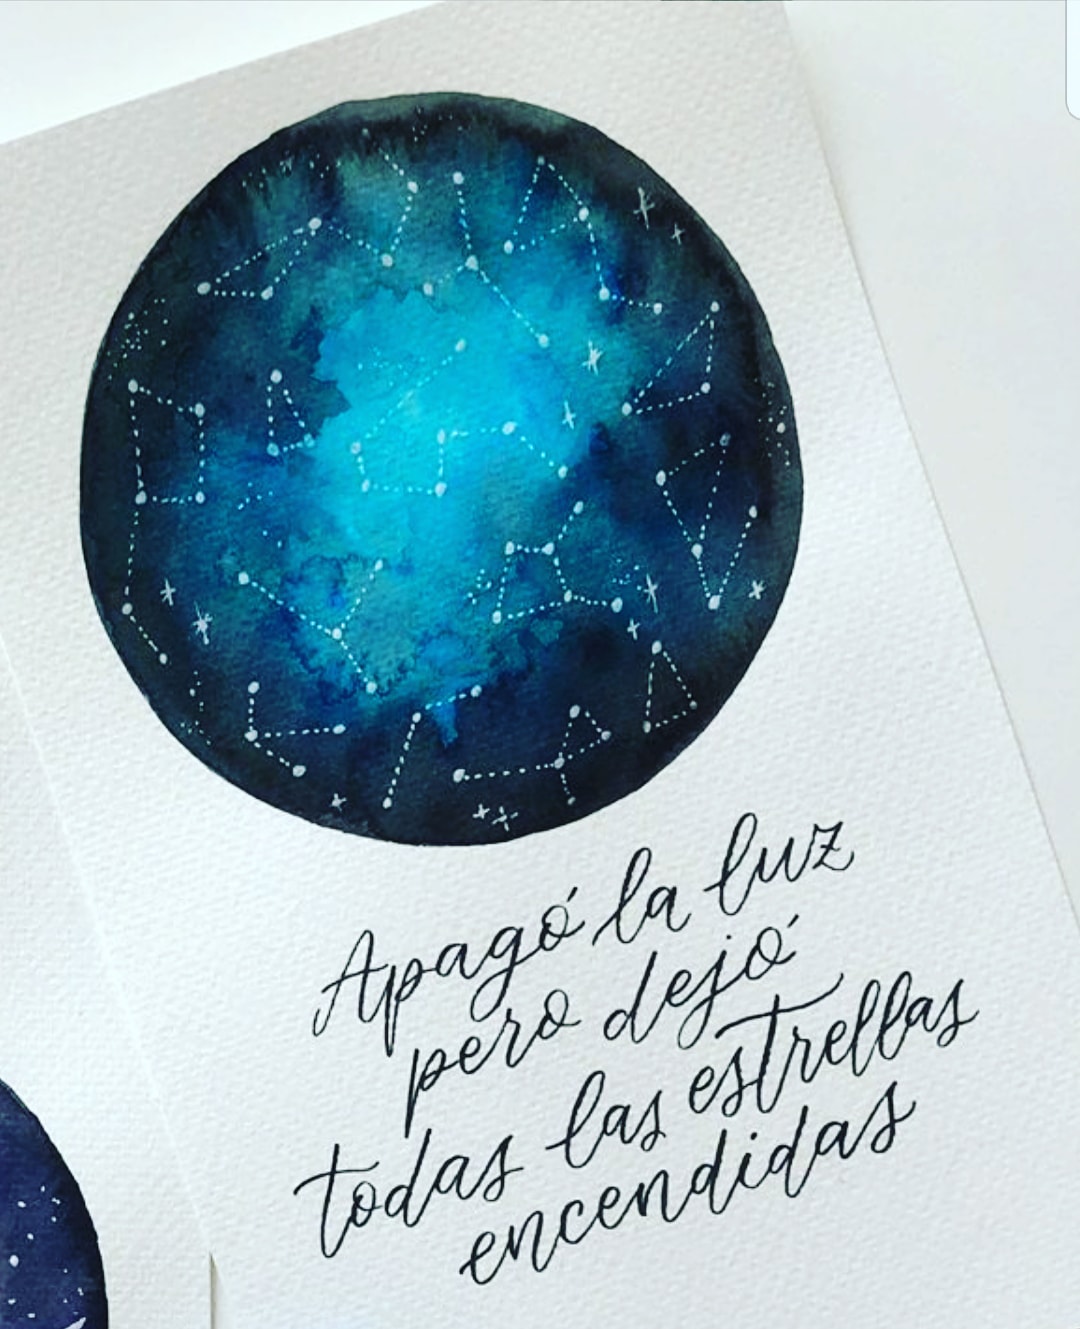 Apagó la luz
pero dejó
todas las estrellas
encendidas